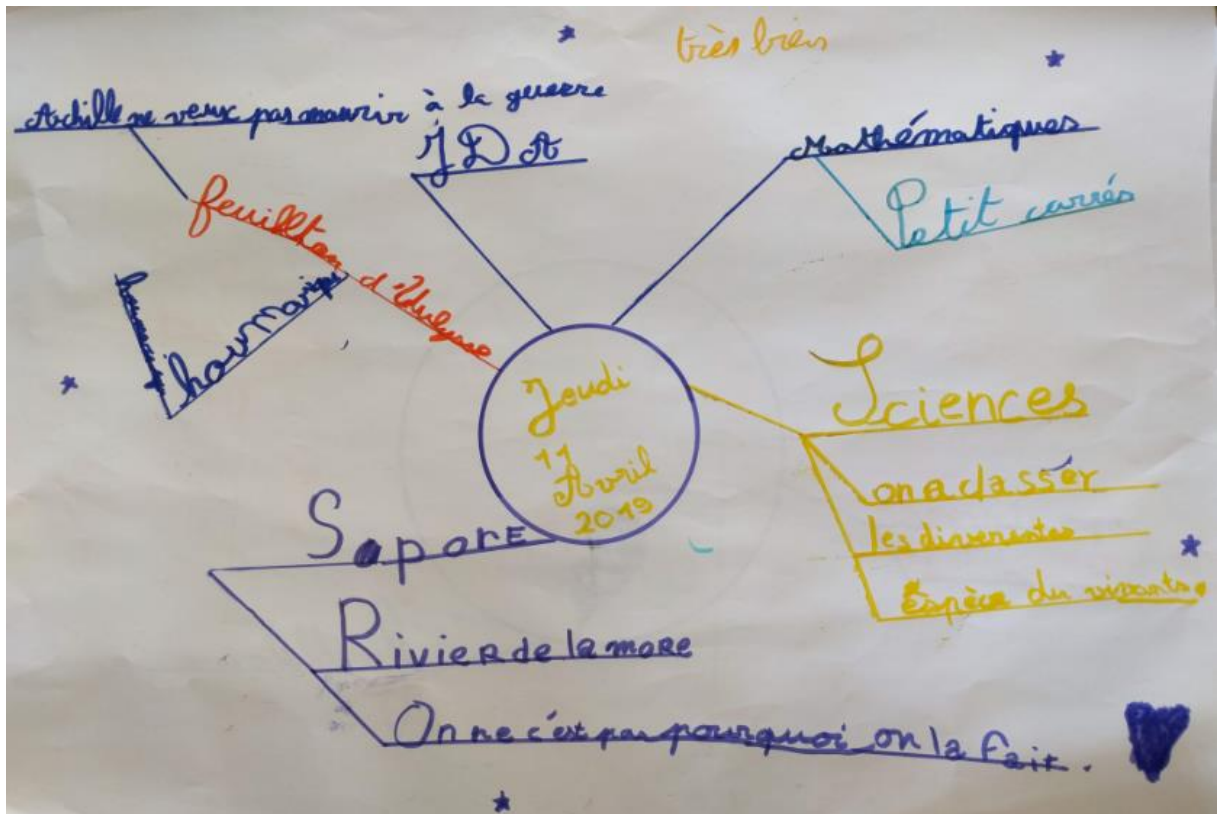 très bien
Achille ne veux pas mourir à la guerre
JDA
Mathématiques
Petit carrés
feuillton d'Udulysse
houmarique
Jeudi
11
Avril
2019
Sciences
on a classér
les diverentes
Espèce du vivants.
SaporE
Rivier de la more
On ne c'est pas pourquoi on la fait.